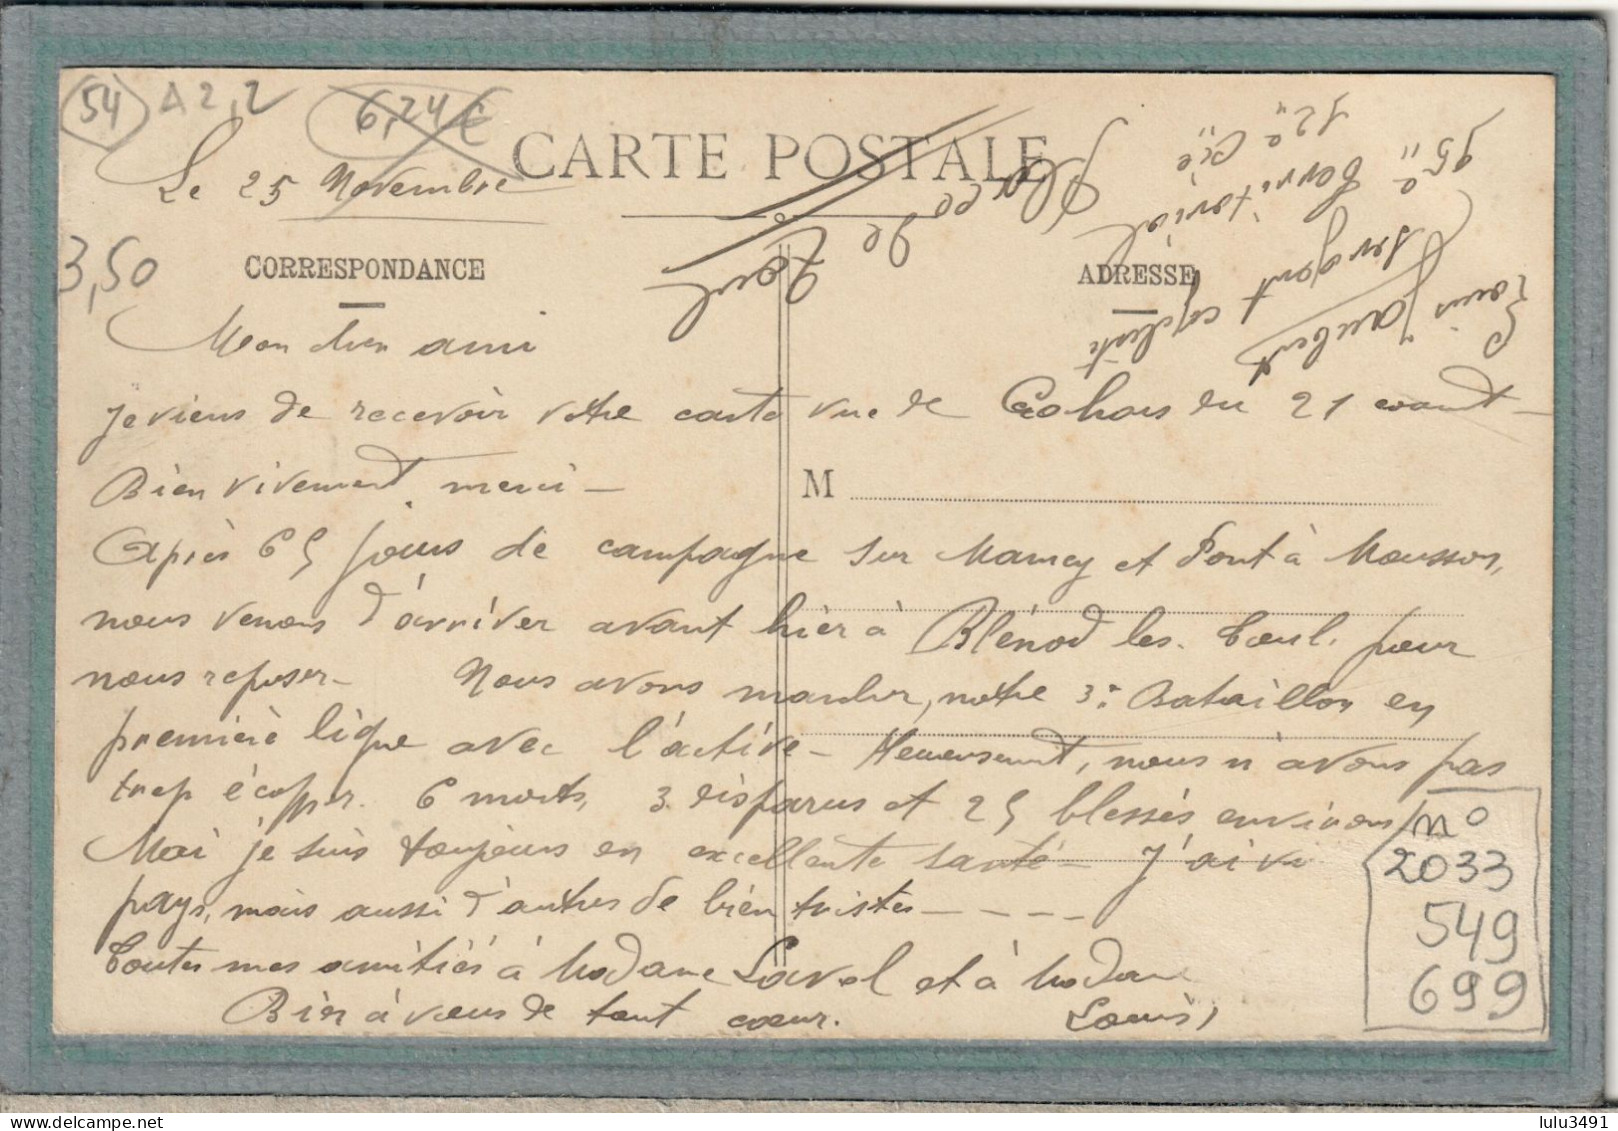 54 A2,2 6,24€
CARTE POSTALE
Le 25 Novembre
3,50
CORRESPONDANCE
ADRESSE
Louis Jaubert
sergent cycliste
95e territorial
12e Cie
Place de
Toul
Mon cher ami
je viens de recevoir votre carte vue de Cahors du 21 court
Bien vivement merci –
M
Après 65 jours de campagne sur Nancy et Pont à Mousson,
nous venons d'arriver avant hier à Blénod les Toul. pour
nous reposer – Nous avons marché, notre 3e Bataillon en
première ligne avec l'active – Heureusement, nous n'avons pas
trop écopper. 6 morts, 3 disparus et 25 blessés environ
Moi je suis toujours en excellente santé – J'ai vu
pays, mais aussi d'autres de bien tristes – – – –
Toutes mes amitiés à Madame Laval et à Madame
Bien à vous de tout coeur. Louis,
n°
2033
549
699
lulu3491